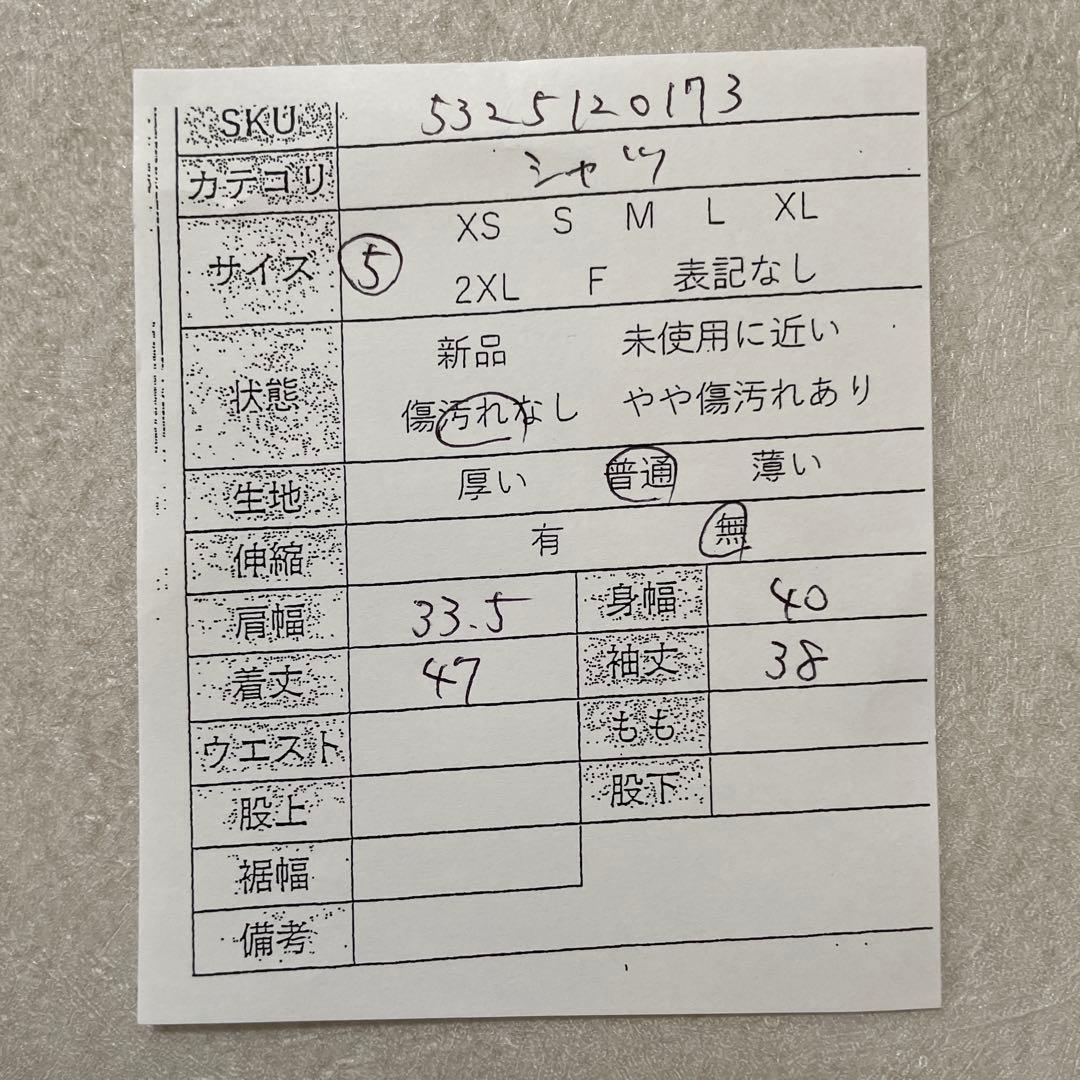 SKU 5325120173
カテゴリ シャツ
サイズ ⑤ XS S M L XL
2XL F 表記なし
状態 新品 未使用に近い
傷汚れなし やや傷汚れあり
生地 厚い 普通 薄い
伸縮 有 無
肩幅 33.5 身幅 40
着丈 47 袖丈 38
ウエスト もも
股上 股下
裾幅
備考